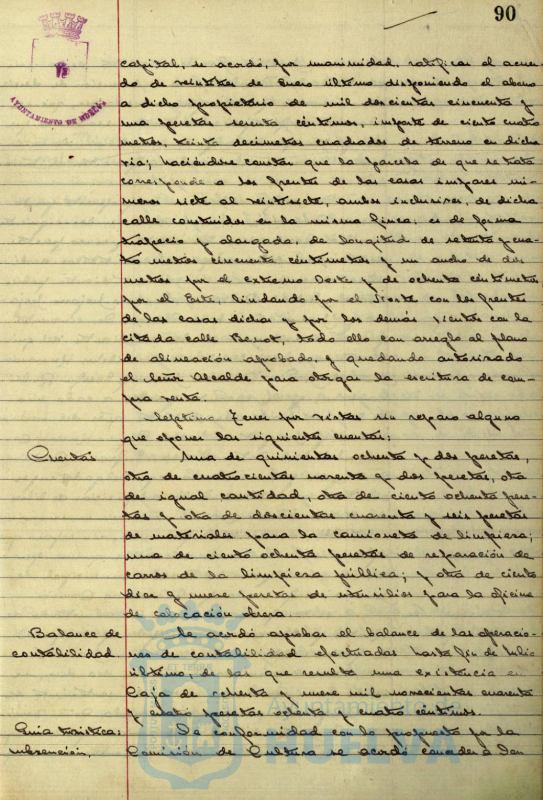 90
AYUNTAMIENTO DE HUELVA
capital, se acordó, por unanimidad, ratificar el acuer-
do de veintitres de Enero último disponiendo el abono
a dicho propietario de mil doscientas cincuenta y
una pesetas sesenta céntimos, importe de ciento cuatro
metros, treinta decímetros cuadrados de terreno en dicha
vía; haciéndose constar que la parcela de que se trata
corresponde a los frentes de las casas impares nú-
meros siete al veintisiete, ambos inclusives, de dicha
calle construidas en la misma finca, es de forma
trapecio y alargada, de longitud de setenta y cua-
tro metros cincuenta céntimetros y un ancho de dos
metros por el extremo Oeste y de ochenta céntimetros
por el Este, lindando por el Norte con los frentes
de las casas dichas y por los demás vientos con la
citada calle Berrot, todo ello con arreglo al plano
de alineación aprobado, y quedando autorizado
el Señor Alcalde para otorgar la escritura de com-
pra venta.
Séptimo. Tener por vistas sin reparo alguno
que oponer las siguientes cuentas;
Cuentas Una de quinientas ochenta y dos pesetas,
otra de cuatrocientas noventa y dos pesetas, otra
de igual cantidad, otra de ciento ochenta pese-
tas y otra de doscientas cuarenta y seis pesetas
de materiales para la camioneta de limpieza;
una de ciento ochenta pesetas de reparación de
carros de la limpieza pública; y otra de ciento
diez y nueve pesetas de utensilios para la oficina
de colocación obrera.
Balance de Se acordó aprobar el balance de las operacio-
contabilidad. nes de contabilidad efectuadas hasta fin de Julio
último, de las que resulta una existencia en
Caja de ochenta y nueve mil novecientas cuarenta
y cuatro pesetas ochenta y cuatro céntimos.
Guía turística: De conformidad con lo propuesto por la
subvención. Comisión de Cultura se acordó conceder a Don
Ayuntamiento
HUELVA